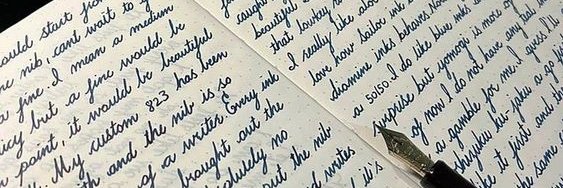 ould start fr
ne nib, cant wait to g
a fine. I mean a medium
icy but a fine would be
point, it would be beautiful
My custom 823 has been
th and the nib is so
of a writer. Every ink
brought out the
absolutely no
out the nib
writes
caught
beautif
that
I really like
love how Sailor ink
diamine ink behaves.
a 50:50. I do like blue inks
surprise but yomogi is more g
of now I do not have any bad ink
a gamble for me. I guess I'll
Shinjuku a go
like it first and th
same
it's